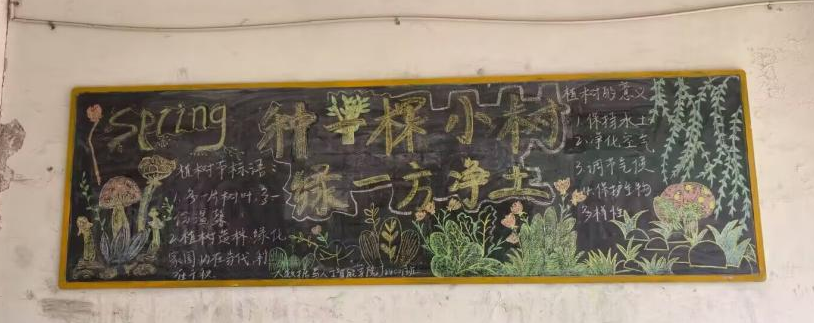 Spring
种一棵小树
绿一方净土
植树节标语:
1.多一片树叶多一
份温馨
2.植树造林绿化
家园功在当代,利
在千秋
植树的意义
1.保持水土
2.净化空气
3.调节气候
4.保护生物
多样性
大数据与人工智能学院